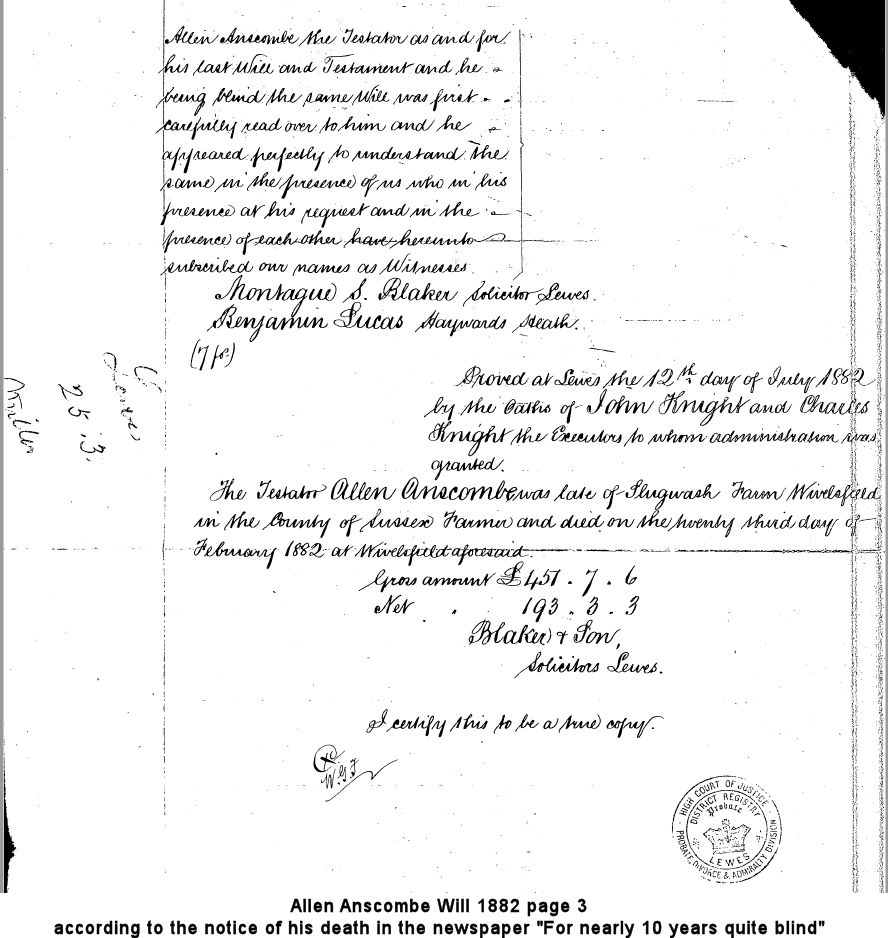 Allen Anscombe the Testator as and for
his last Will and Testament and he
being blind the same Will was first
carefully read over to him and he
appeared perfectly to understand the
same in the presence of us who in his
presence at his request and in the
presence of each other have hereunto
subscribed our names as Witnesses
Montague S. Blaker Solicitor Lewes.
Benjamin Lucas Haywards Heath.
(7 fos)
Proved at Lewes the 12th day of July 1882
by the Oaths of John Knight and Charles
Knight the Executors to whom administration was
granted.
The Testator Allen Anscombe was late of Slugwash Farm Wivelsfield
in the County of Sussex Farmer and died on the twenty third day of
February 1882 at Wivelsfield aforesaid
Gross amount £451.7.6
Net . 193.3.3
Blaker & Son,
Solicitors Lewes.
I certify this to be a true copy.
W.G.F
25.3.
Miller
HIGH COURT OF JUSTICE
PROBATE, DIVORCE & ADMIRALTY DIVISION
DISTRICT REGISTRY
Probate
LEWES
Allen Anscombe Will 1882 page 3
according to the notice of his death in the newspaper "For nearly 10 years quite blind"